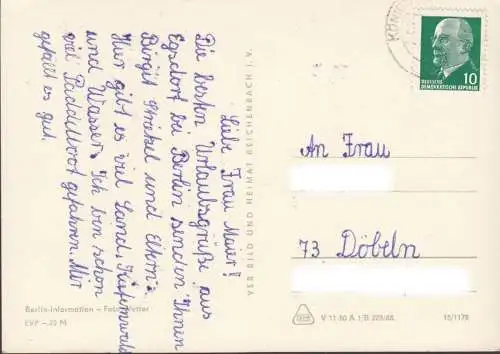 Liebe Frau Maier!
Die besten Urlaubsgrüße aus
Egsdorf bei Berlin senden Ihnen
Birgit und Eltern.
Hier gibt es viel Sand, Kiefernwald
und Wasser. Ich bin schon
viel Paddelboot gefahren. Mir
gefällt es gut.
VEB BILD UND HEIMAT REICHENBACH I. V.
Berlin-Information –
EVP –,20 M
10
DEUTSCHE
DEMOKRATISCHE REPUBLIK
An Frau
73 Döbeln
V 11 50 A 1/B 225/68
15/1178